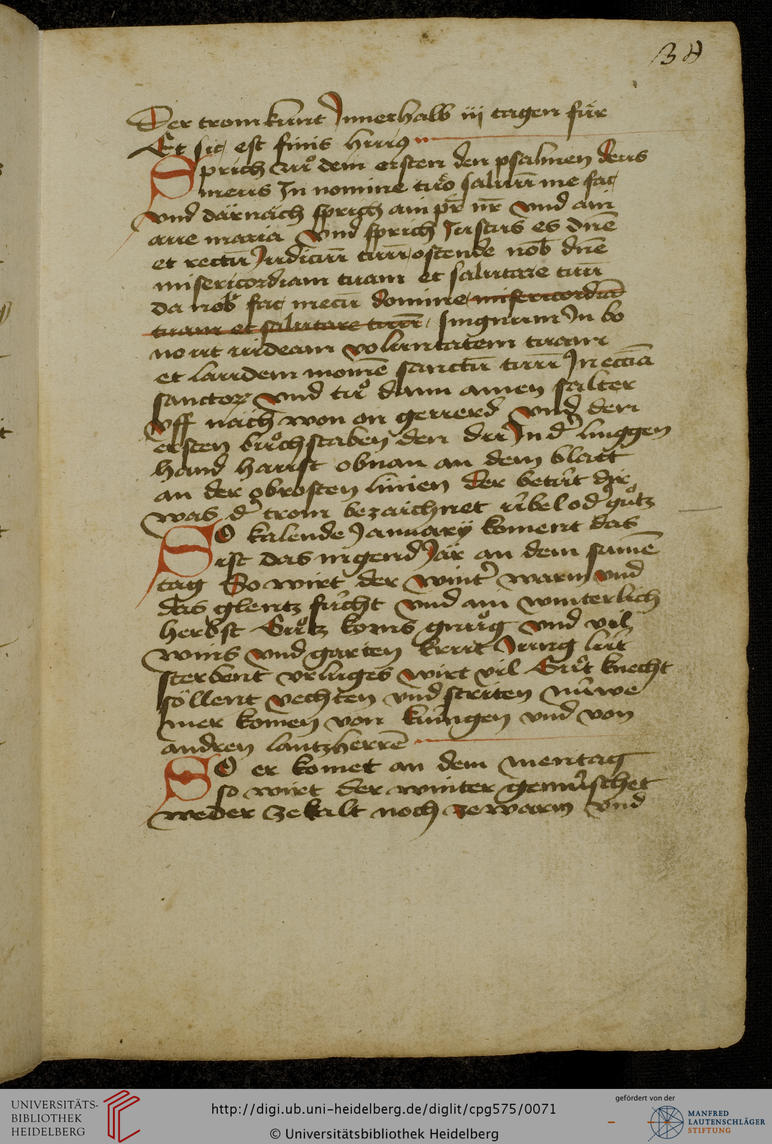 34
Der trom kunt Jnnerhalb iij tagen für
Et sic est finis huius
Sprich zuͦ dem ersten den psalmen deus
meus In nomine tuo saluum me fac
vnd darnach sprich ain pr̄ nr̄ vnd ain
aue maria vnd sprich Justus es dn̄e
et rectū Judiciū tuū ostende nob dn̄e
misericordiam tuam et salutare tuū
da nob fac mecū domine misericordiā
tuam et salutare tuū singnum In bo
no ut uideam voluntatem tuam
et laudem nomē sanctū tuū Jn eccīa
sanctoꝝ vnd tuͦ dann amen salter
vff nach won on geuerd vnd den
ersten buͦchstaben den du Jn d̓ linggen
hand haust obnan an dem blatt
an der obrosten linien der betüt dir
was d̓ trom bezaichnet übel od̓ guͦtz
SO kalende Januarij koment das
ist das ingend Jär an dem sunē
tag So wirt der wint̓ warm vnd
das glentz fücht vnd ain winterlich
herbst Guͦtz korns gnuͦg vnd vil
wins vnd garten krut Jung lüt
sterbent vrluges wirt vil Guͦt knecht
söllent vechten vnd striten nüwe
mer komen von küngen vnd von
andren lantzherrē
SO er komet an dem mentag
so wirt der winter gemüschet
weder ze kalt noch ze warm vnd
UNIVERSITÄTS-
BIBLIOTHEK
HEIDELBERG
http://digi.ub.uni-heidelberg.de/diglit/cpg575/0071
© Universitätsbibliothek Heidelberg
gefördert von der
MANFRED
LAUTENSCHLÄGER
STIFTUNG